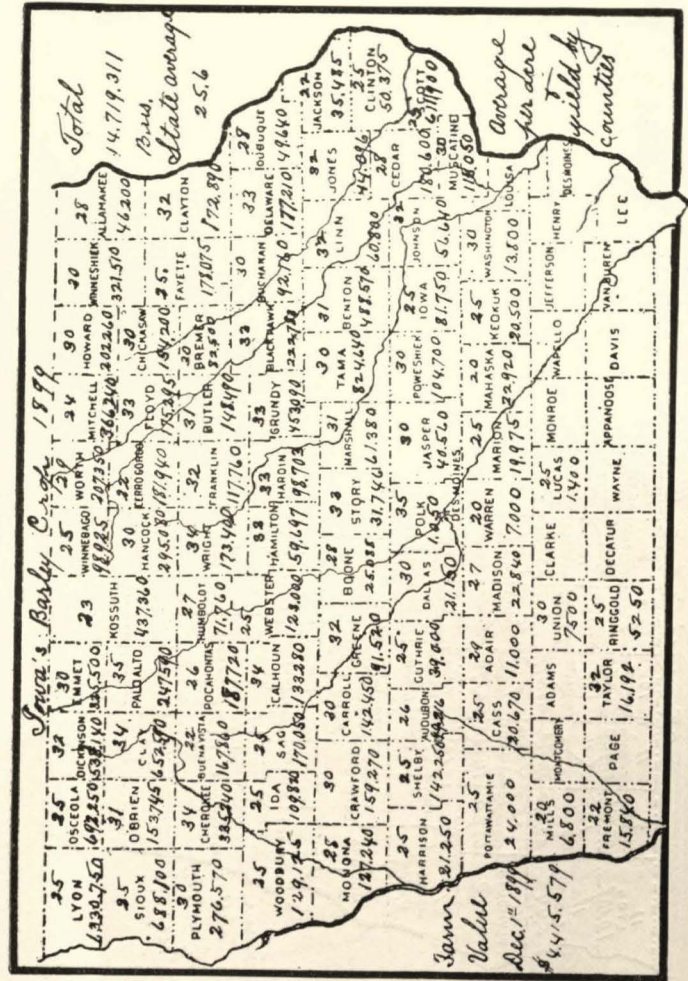 Iowa's Barley Crop 1899
Total
14.719.311
Bus.
State average
25.6
25
LYON
1,330,750
25
OSCEOLA
693,250
32
DICKINSON
538,140
30
EMMET
23
KOSSUTH
437,360
25
WINNEBAGO
WORTH
207,350
24
MITCHELL
366,240
30
HOWARD
202260
20
WINNESHIEK
321.510
28
ALLAMAKEE
46200
25
SIOUX
688.100
31
O'BRIEN
153,745
34
CLAY
652,590
35
PALO ALTO
247590
30
HANCOCK
295,080
22
CERRO GORDO
181,940
33
FLOYD
30
CHICKASAW
154200
25.
FAYETTE
178,075
32
CLAYTON
172,890
30
PLYMOUTH
276.570
34
CHEROKEE
22
BUENA VISTA
167860
26
POCAHONTAS
187,720
27
HUMBOLDT
71,760
34
WRIGHT
173,400
32
FRANKLIN
117,760
31
BUTLER
148,490
20
BREMER
82,500
25
WOODBURY
25
IDA
109,820
25
SAC
170,050
34
CALHOUN
133280
25
WEBSTER
123,000
32
HAMILTON
59,697
33
HARDIN
198,703
33
GRUNDY
453,090
33
BLACK HAWK
30
BUCHANAN
92,760
33
DELAWARE
177,210
28
DUBUQUE
49.640
25
MONONA
127,240
30
CRAWFORD
159,270
30
CARROLL
142,450
32
GREENE
91,520
28
BOONE
25,088
33
STORY
31,746
31
MARSHALL
61,380
30
TAMA
824,640
31
BENTON
488,570
32
LINN
60,880
32
JONES
22
JACKSON
35,485
25
HARRISON
21.250
25
SHELBY
26
AUDUBON
25
GUTHRIE
39,000
30
DALLAS
21,150
35
POLK
DES MOINES
30
JASPER
40,560
30
POWESHIEK
104,700
25
IOWA
81,750
32
JOHNSON
56,640
28
CEDAR
180,600
25
CLINTON
50,375
SCOTT
30
MUSCATINE
25
POTTAWATTAMIE
24.000
25
CASS
20,670
29
ADAIR
11.000
27
MADISON
22,840
20
WARREN
7,000
25
MARION
19,975
20
MAHASKA
22,920
25
KEOKUK
20,500
30
WASHINGTON
13,800
LOUISA
20
MILLS
6,800
MONTGOMERY
ADAMS
30
UNION
7500
CLARKE
25
LUCAS
1,400
MONROE
WAPELLO
JEFFERSON
HENRY
DES MOINES
22
FREMONT
PAGE
32
TAYLOR
16,192
25
RINGGOLD
5250
DECATUR
WAYNE
APPANOOSE
DAVIS
VAN BUREN
LEE
Farm
Value
Dec. 1st 1899
$4.415.579
Average
per acre
yield by
counties